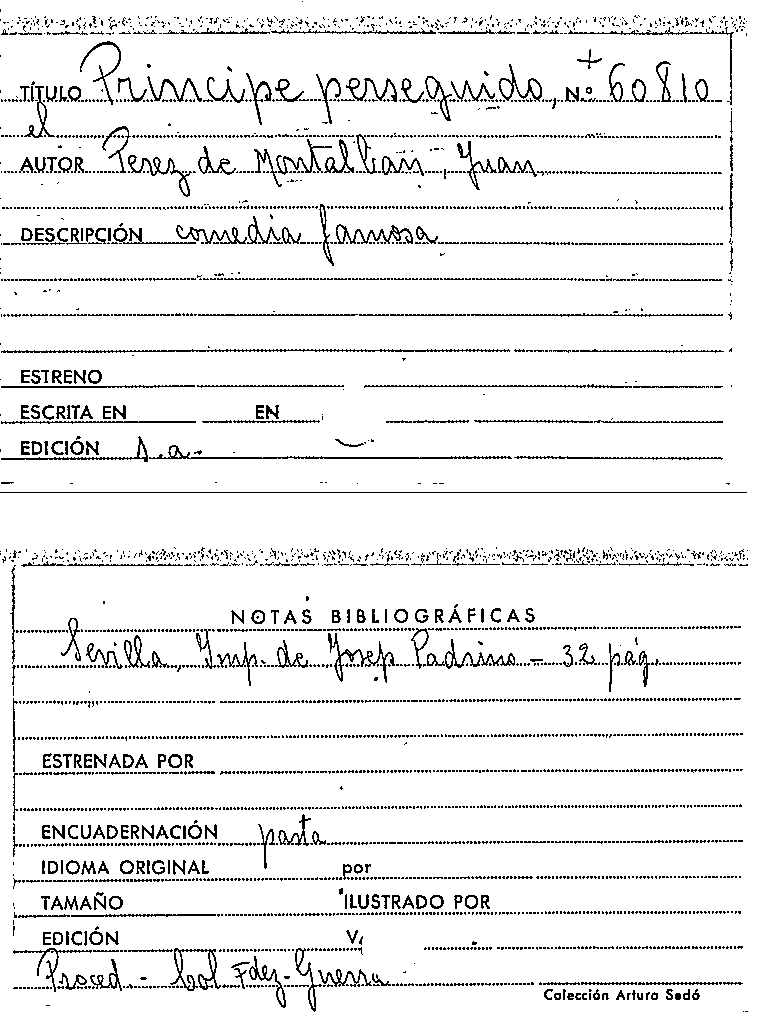 TÍTULO Principe perseguido, N.º + 60810
el
AUTOR Perez de Montalban, Juan
DESCRIPCIÓN comedia famosa
ESTRENO
ESCRITA EN EN
EDICIÓN s.a.
NOTAS BIBLIOGRÁFICAS
Sevilla, Imp. de Josep Padrino - 32 pág.
ESTRENADA POR
ENCUADERNACIÓN pasta
IDIOMA ORIGINAL por
TAMAÑO ILUSTRADO POR
EDICIÓN V.
Proced.- Col Fdez-Guerra
Colección Arturo Sedó